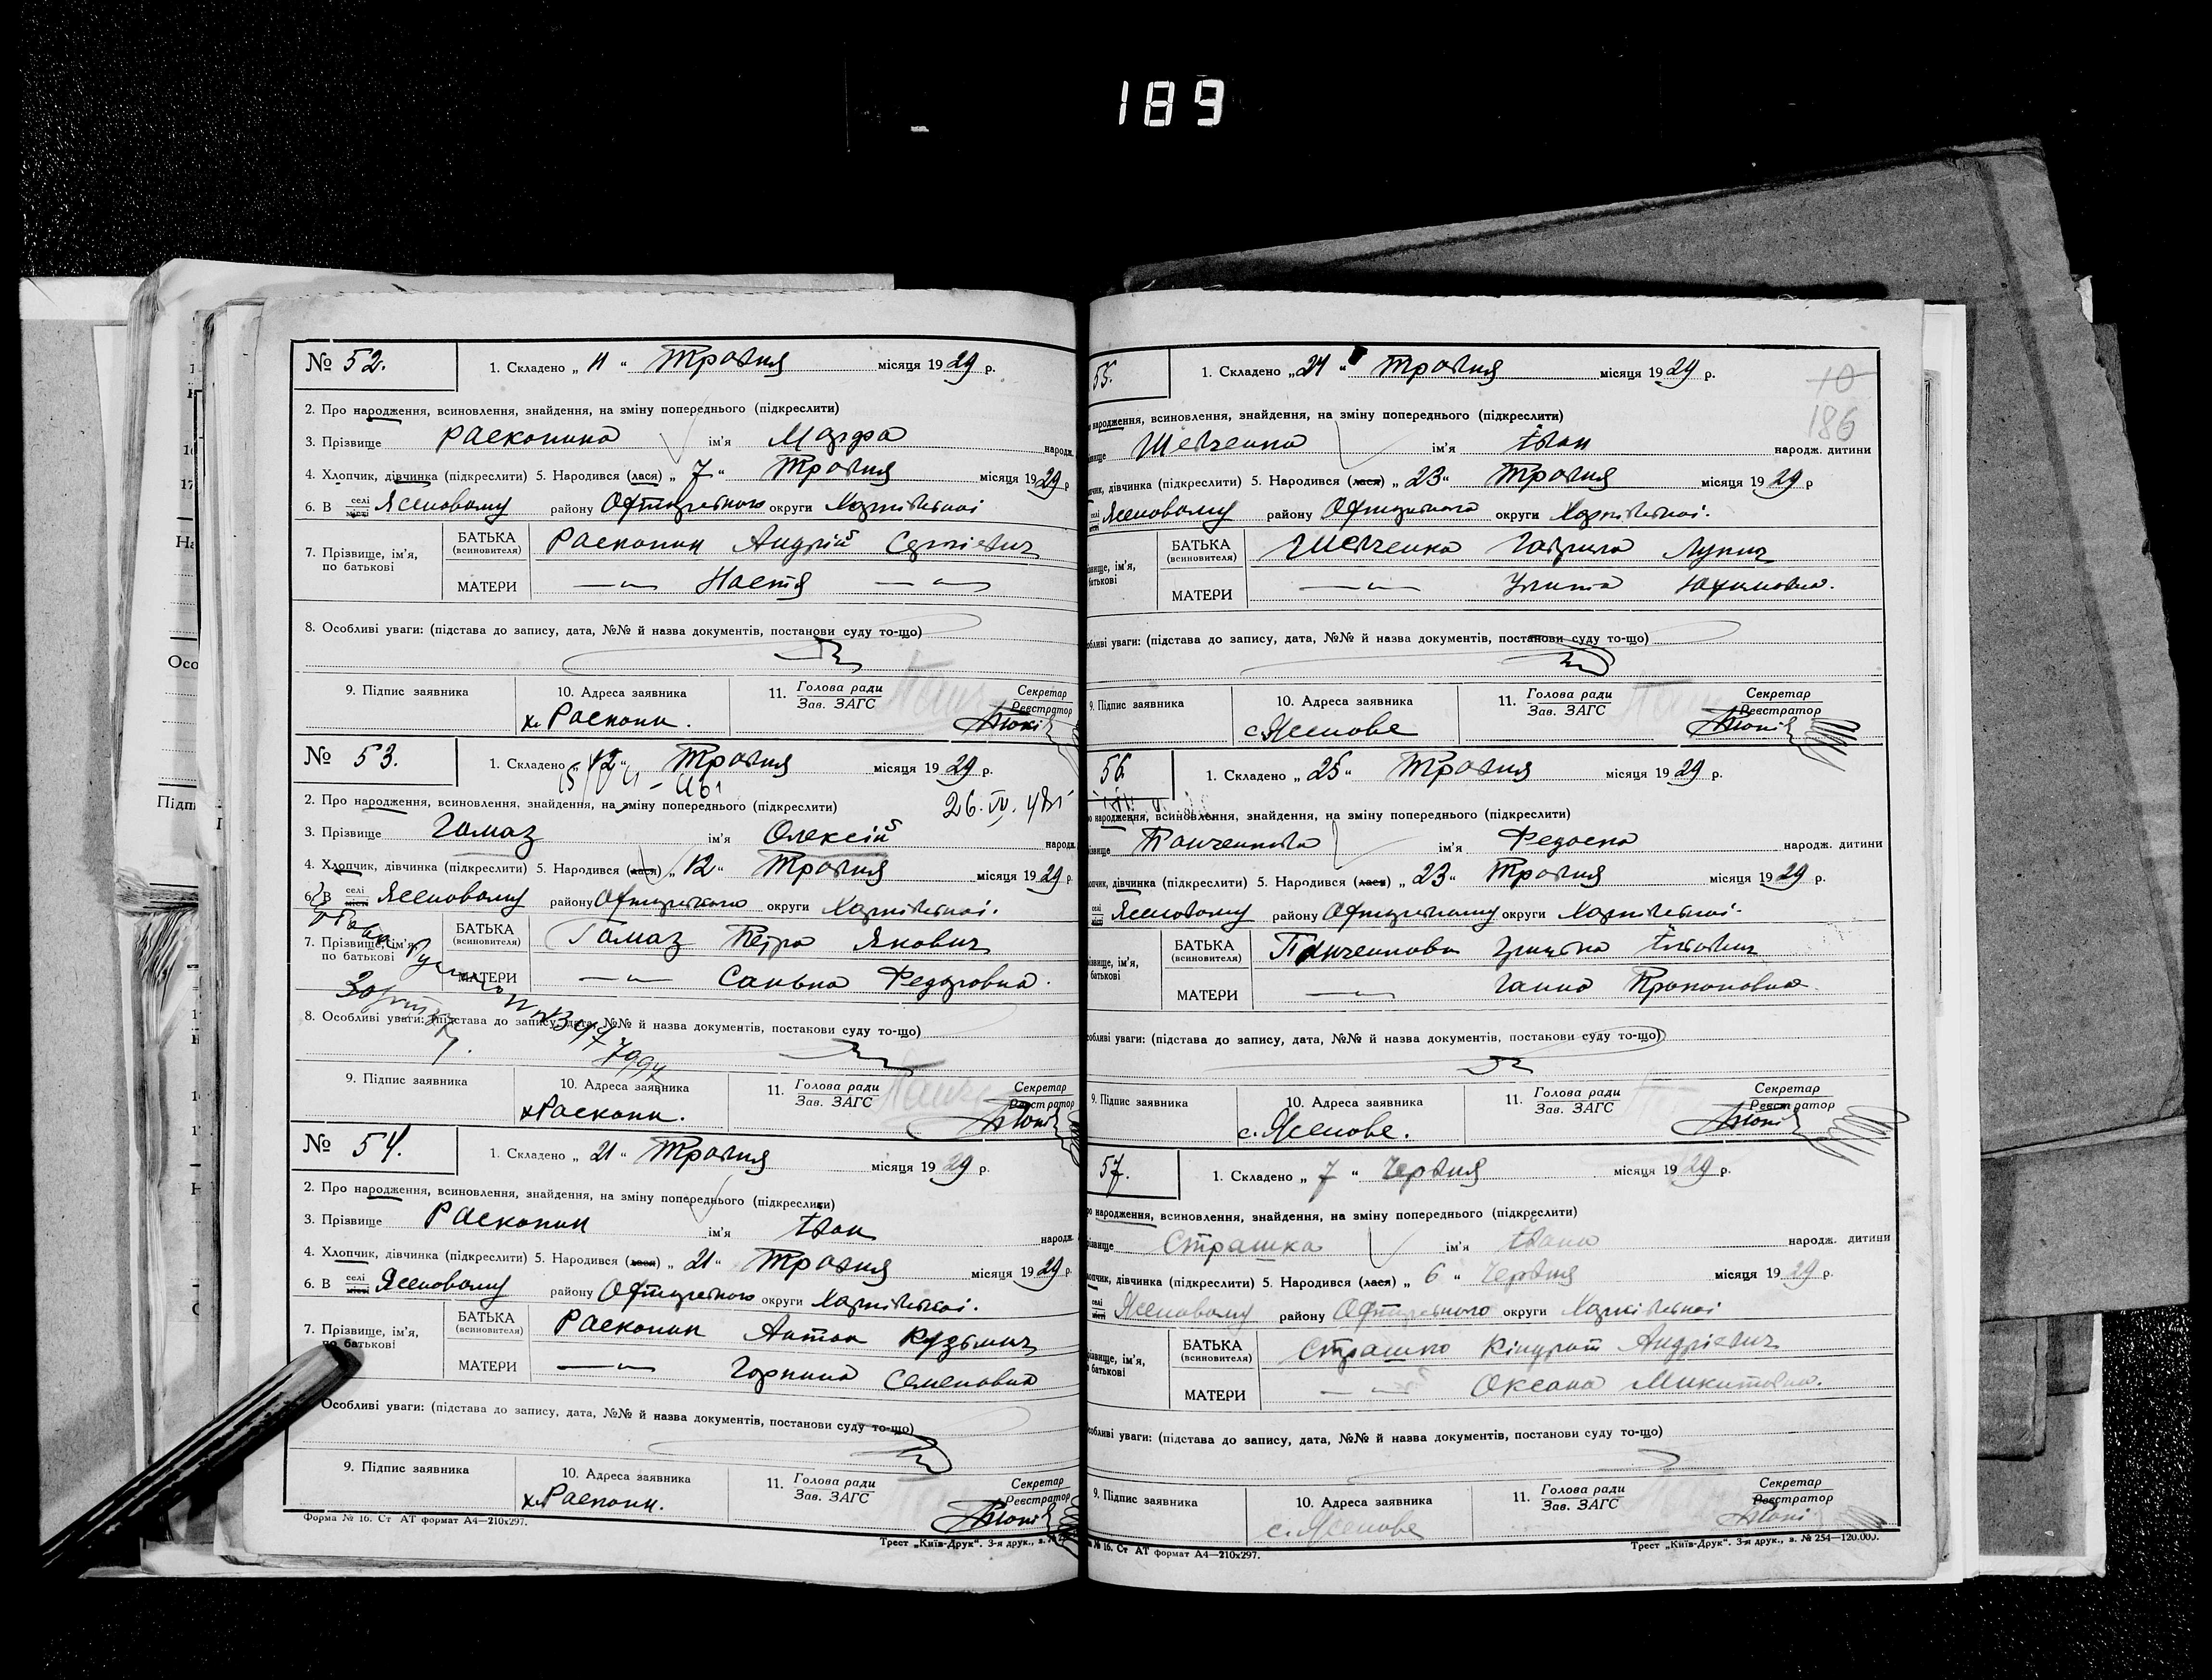 189
№ 52.
1. Складено „ 11 “ Травня місяця 1929 р.
2. Про народження, всиновлення, знайдення, на зміну попереднього (підкреслити)
3. Прізвище Расконина ім'я Марфа народж.
4. Хлопчик, дівчинка (підкреслити) 5. Народився (лася) „ 7 “ Травня місяця 1929 р
6. В селі місті Ясеновому району Охтирського округи Харківської
7. Прізвище, ім'я, по батькові
БАТЬКА (всиновителя) Расконин Андрій Сергієвич
МАТЕРИ —„— Настя —„—
8. Особливі уваги: (підстава до запису, дата, №№ й назва документів, постанови суду то-що)
9. Підпис заявника
10. Адреса заявника
х. Расконн.
11. Голова ради
Зав. ЗАГС
Секретар
Реєстратор
№ 53.
1. Складено „ 12 “ Травня місяця 1929 р.
2. Про народження, всиновлення, знайдення, на зміну попереднього (підкреслити)
26. IV. 48
3. Прізвище Гамаз ім'я Олексій народж.
4. Хлопчик, дівчинка (підкреслити) 5. Народився (лася) „ 12 “ Травня місяця 1929 р
6. В селі місті Ясеновому району Охтирського округи Харківської.
7. Прізвище, ім'я, по батькові
БАТЬКА (всиновителя) Гамаз Петро Якович
МАТЕРИ —„— Санька Федоровна.
8. Особливі уваги: (підстава до запису, дата, №№ й назва документів, постанови суду то-що)
9. Підпис заявника
10. Адреса заявника
х. Расконн.
11. Голова ради
Зав. ЗАГС
Секретар
Реєстратор
№ 54.
1. Складено „ 21 “ Травня місяця 1929 р.
2. Про народження, всиновлення, знайдення, на зміну попереднього (підкреслити)
3. Прізвище Расконин ім'я Іван народж.
4. Хлопчик, дівчинка (підкреслити) 5. Народився (лася) „ 21 “ Травня місяця 1929 р.
6. В селі місті Ясеновому району Охтирського округи Харківської.
7. Прізвище, ім'я, по батькові
БАТЬКА (всиновителя) Расконин Антон Кузьмич
МАТЕРИ —„— Горпина Семеновна
Особливі уваги: (підстава до запису, дата, №№ й назва документів, постанови суду то-що)
9. Підпис заявника
10. Адреса заявника
х. Расконн.
11. Голова ради
Зав. ЗАГС
Секретар
Реєстратор
Форма № 16. Ст АТ формат А4—210х297.
Трест „Київ-Друк“. 3-я друк., з. №
55.
1. Складено „ 24 “ Травня місяця 1929 р.
10
186
народження, всиновлення, знайдення, на зміну попереднього (підкреслити)
Шевченко ім'я Іван народж. дитини
дівчинка (підкреслити) 5. Народився (лася) „ 23 “ Травня місяця 1929 р
селі Ясеновому району Охтирського округи Харківської.
ім'я, батькові
БАТЬКА (всиновителя) Шевченко Гаврило Лукич
МАТЕРИ —„— Улита Юхимовна.
уваги: (підстава до запису, дата, №№ й назва документів, постанови суду то-що)
9. Підпис заявника
10. Адреса заявника
с. Ясенове
11. Голова ради
Зав. ЗАГС
Секретар
Реєстратор
56.
1. Складено „ 25 “ Травня місяця 1929 р.
народження, всиновлення, знайдення, на зміну попереднього (підкреслити)
Панченкова ім'я Федоска народж. дитини
дівчинка (підкреслити) 5. Народився (лася) „ 23 “ Травня місяця 1929 р.
селі Ясеновому району Охтирському округи Харківської.
ім'я, батькові
БАТЬКА (всиновителя) Панченков Грицько Іванович
МАТЕРИ —„— Ганна Прокоповна
уваги: (підстава до запису, дата, №№ й назва документів, постанови суду то-що)
9. Підпис заявника
10. Адреса заявника
с. Ясенове.
11. Голова ради
Зав. ЗАГС
Секретар
Реєстратор
57.
1. Складено „ 7 “ Червня місяця 1929 р.
народження, всиновлення, знайдення, на зміну попереднього (підкреслити)
Страшка ім'я народж. дитини
дівчинка (підкреслити) 5. Народився (лася) „ 6 “ Червня місяця 1929 р.
селі Ясеновому району Охтирського округи Харківської
ім'я, батькові
БАТЬКА (всиновителя) Страшко Кіндрат Андрієвич
МАТЕРИ —„— Оксана Микитовна.
уваги: (підстава до запису, дата, №№ й назва документів, постанови суду то-що)
9. Підпис заявника
10. Адреса заявника
с. Ясенове
11. Голова ради
Зав. ЗАГС
Секретар
Реєстратор
№ 16. Ст АТ формат А4—210х297.
Трест „Київ-Друк“. 3-я друк., з. № 254—120.000.